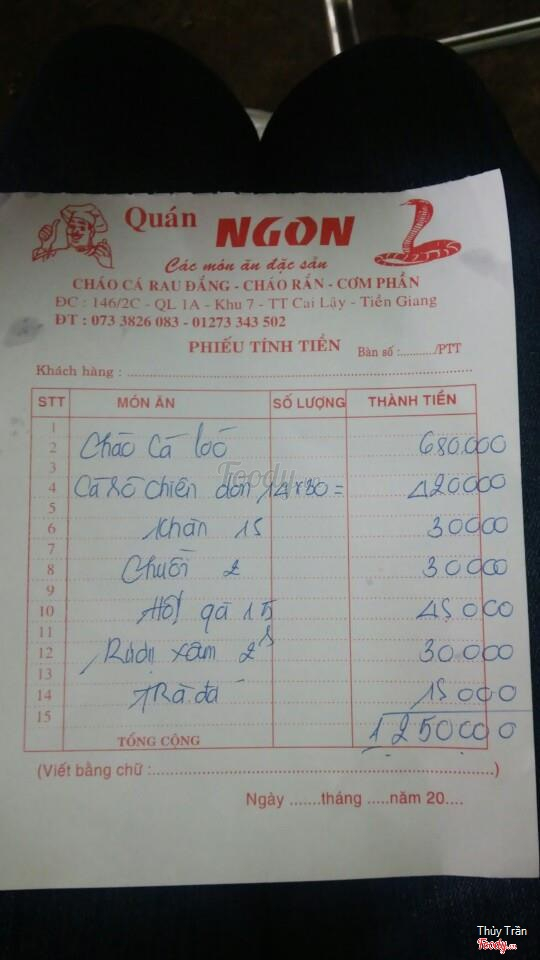 Quán NGON
Các món ăn đặc sản
CHÁO CÁ RAU ĐẮNG - CHÁO RẮN - CƠM PHẦN
ĐC : 146/2C - QL 1A - Khu 7 - TT Cai Lậy - Tiền Giang
ĐT : 073 3826 083 - 01273 343 502
PHIẾU TÍNH TIỀN Bàn số :.........../PTT
Khách hàng : ................................................
STT MÓN ĂN SỐ LƯỢNG THÀNH TIỀN
1
2 Cháo Cá lóc 680.000
3
4 Cá Rô chiên dòn 14x30= 420000
5
6 Khăn 15 30000
7
8 Chuối 2 30000
9
10 Hột gà 15 45000
11
12 Rượu xâm 2 30.000
13
14 TRà đá 15000
15
TỔNG CỘNG 1250000
(Viết bằng chữ :................................................)
Ngày .......tháng .....năm 20....
Foody.vn
Thủy Trần
Foody.vn